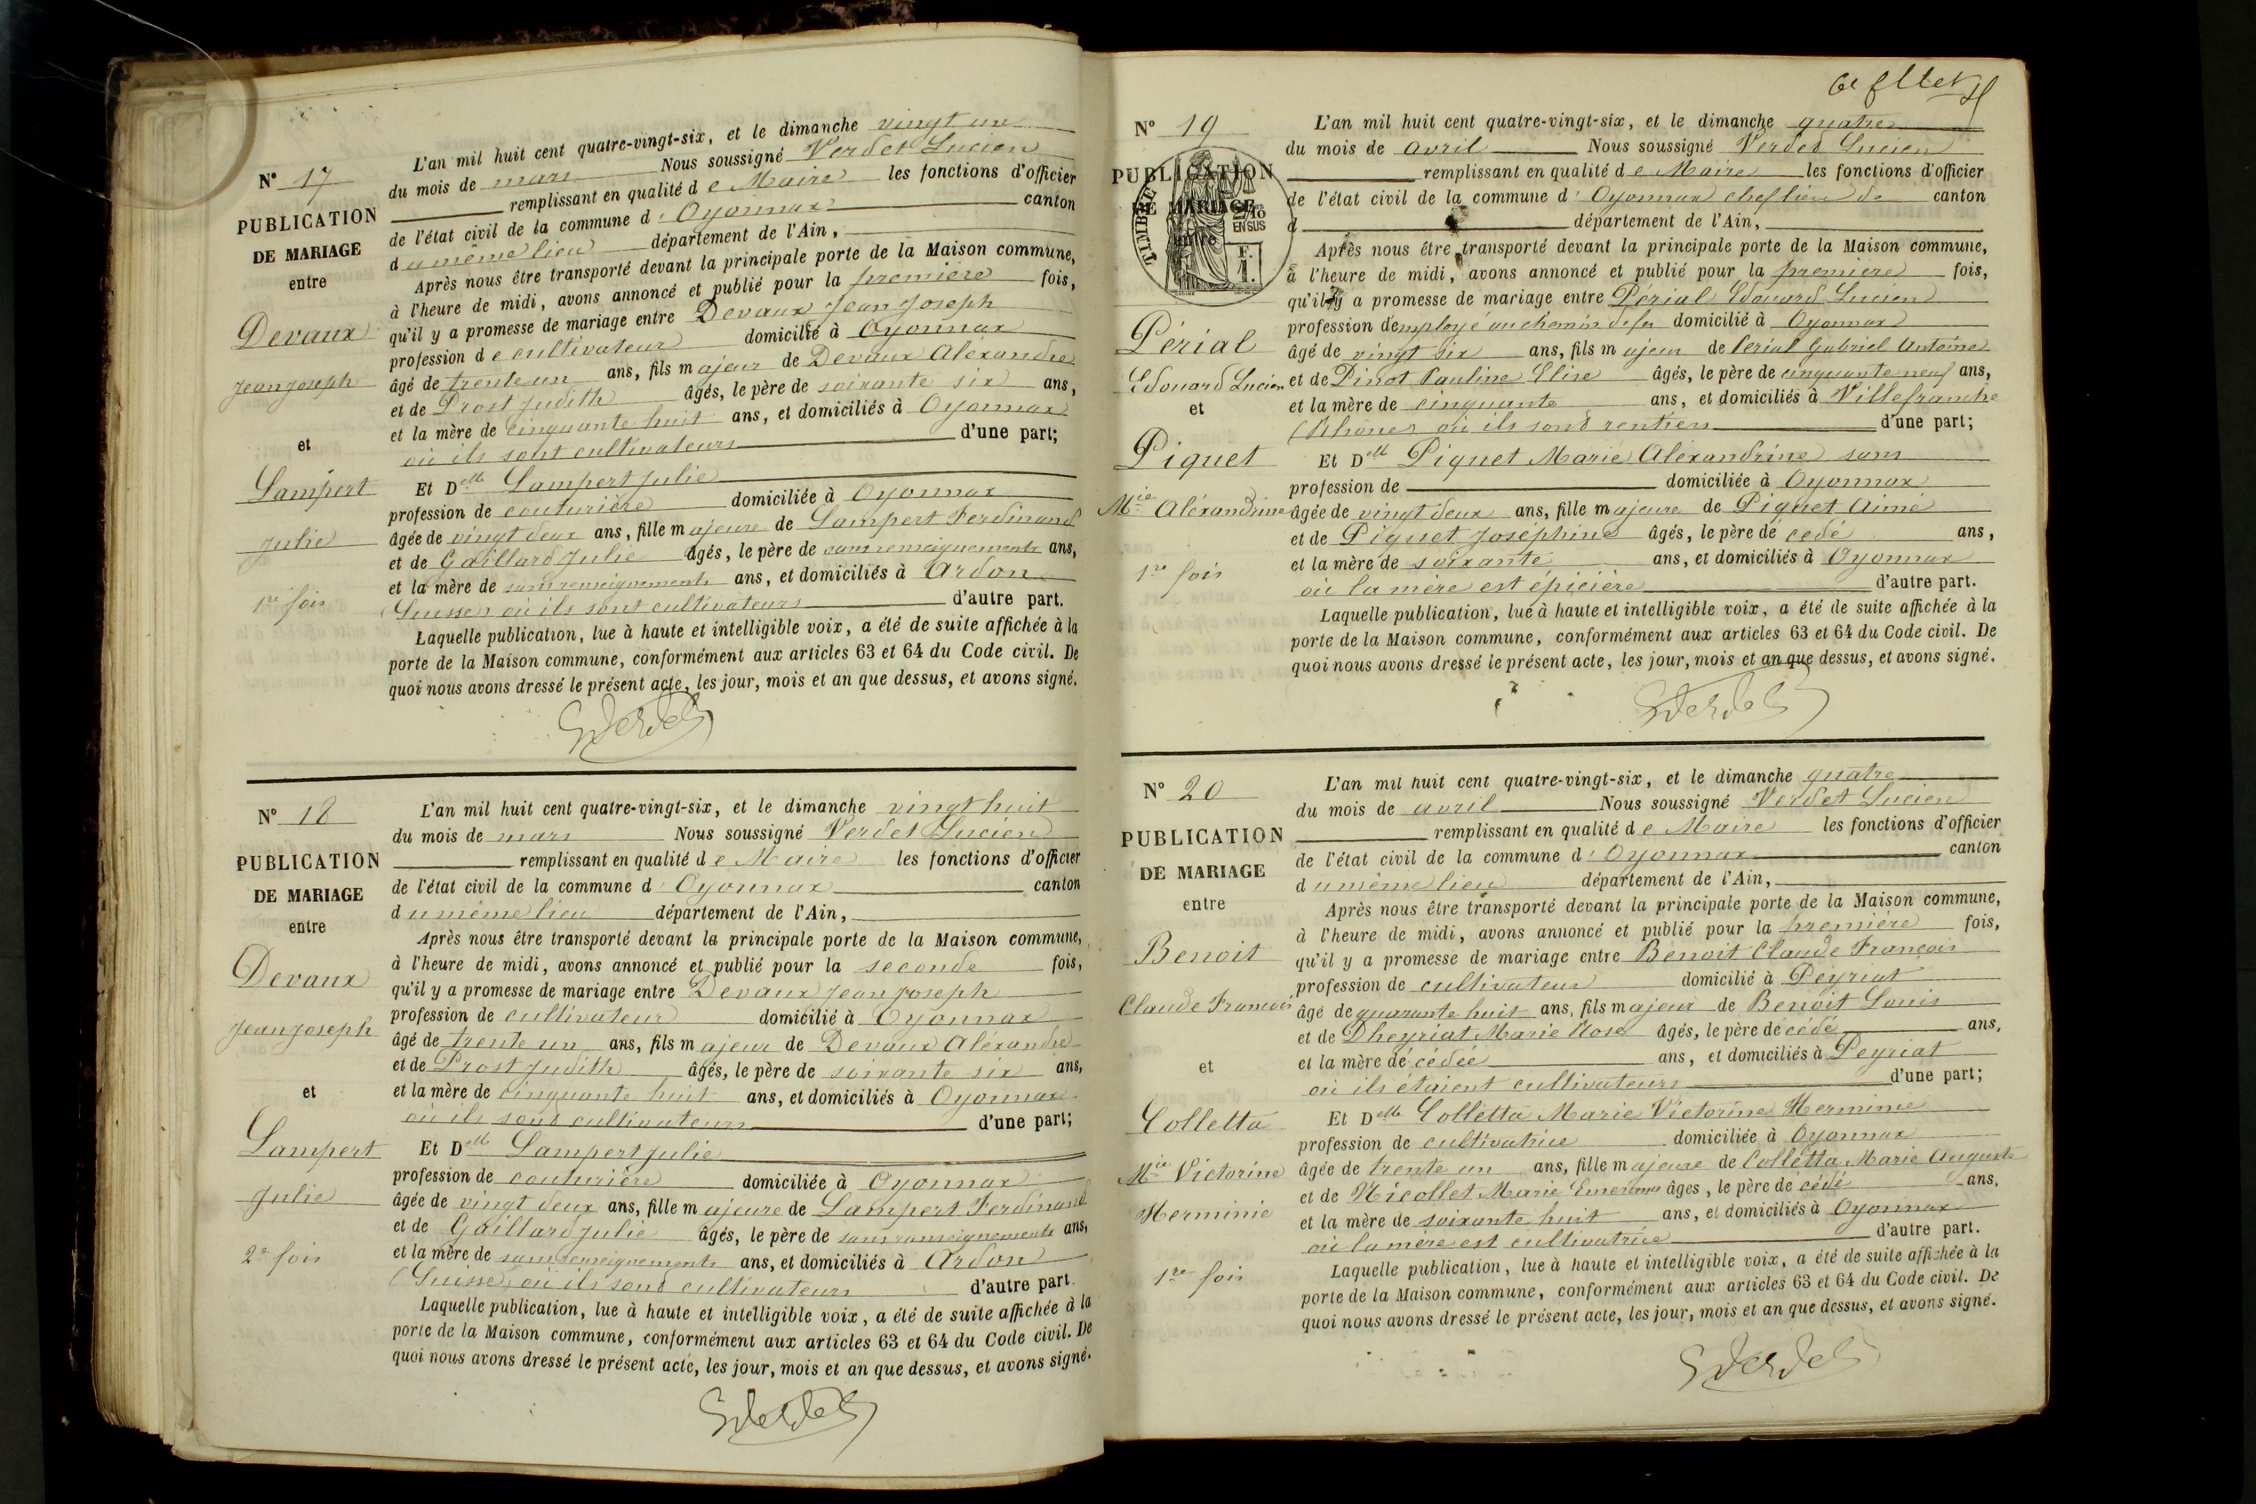 N° 17
PUBLICATION
DE MARIAGE
entre
Devaux
Jean Joseph
et
Lampert
Julie
1re fois
L'an mil huit cent quatre-vingt-six, et le dimanche vingt un
du mois de mars Nous soussigné Verdet Lucien
remplissant en qualité de Maire les fonctions d'officier
de l'état civil de la commune d'Oyonnax canton
du même lieu département de l'Ain,
Après nous être transporté devant la principale porte de la Maison commune,
à l'heure de midi, avons annoncé et publié pour la première fois,
qu'il y a promesse de mariage entre Devaux Jean Joseph
profession de cultivateur domicilié à Oyonnax
âgé de trente un ans, fils majeur de Devaux Alexandre
et de Prost Judith âgés, le père de soixante six ans,
et la mère de cinquante huit ans, et domiciliés à Oyonnax
où ils sont cultivateurs d'une part;
Et Delle Lampert Julie
profession de couturière domiciliée à Oyonnax
âgée de vingt deux ans, fille majeure de Lampert Ferdinand
et de Gaillard Julie âgés, le père de sans renseignements ans,
et la mère de sans renseignements ans, et domiciliés à Ardon
(Suisse) où ils sont cultivateurs d'autre part.
Laquelle publication, lue à haute et intelligible voix, a été de suite affichée à la
porte de la Maison commune, conformément aux articles 63 et 64 du Code civil. De
quoi nous avons dressé le présent acte, les jour, mois et an que dessus, et avons signé.
N° 18
PUBLICATION
DE MARIAGE
entre
Devaux
Jean Joseph
et
Lampert
Julie
2e fois
L'an mil huit cent quatre-vingt-six, et le dimanche vingt huit
du mois de mars Nous soussigné Verdet Lucien
remplissant en qualité de Maire les fonctions d'officier
de l'état civil de la commune d'Oyonnax canton
du même lieu département de l'Ain,
Après nous être transporté devant la principale porte de la Maison commune,
à l'heure de midi, avons annoncé et publié pour la seconde fois,
qu'il y a promesse de mariage entre Devaux Jean Joseph
profession de cultivateur domicilié à Oyonnax
âgé de trente un ans, fils majeur de Devaux Alexandre
et de Prost Judith âgés, le père de soixante six ans,
et la mère de cinquante huit ans, et domiciliés à Oyonnax
où ils sont cultivateurs d'une part;
Et Delle Lampert Julie
profession de couturière domiciliée à Oyonnax
âgée de vingt deux ans, fille majeure de Lampert Ferdinand
et de Gaillard Julie âgés, le père de sans renseignements ans,
et la mère de sans renseignements ans, et domiciliés à Ardon
(Suisse) où ils sont cultivateurs d'autre part.
Laquelle publication, lue à haute et intelligible voix, a été de suite affichée à la
porte de la Maison commune, conformément aux articles 63 et 64 du Code civil. De
quoi nous avons dressé le présent acte, les jour, mois et an que dessus, et avons signé.
N° 19
PUBLICATION
DE MARIAGE
entre
TIMBRE
2/10
EN SUS
F.
1.
Périal
Edouard Lucien
et
Piquet
Mie Alexandrine
1re fois
L'an mil huit cent quatre-vingt-six, et le dimanche quatre
du mois de avril Nous soussigné Verdet Lucien
remplissant en qualité de Maire les fonctions d'officier
de l'état civil de la commune d'Oyonnax chef lieu de canton
d département de l'Ain,
Après nous être transporté devant la principale porte de la Maison commune,
à l'heure de midi, avons annoncé et publié pour la première fois,
qu'il y a promesse de mariage entre Périal Edouard Lucien
profession d'employé au chemin de fer domicilié à Oyonnax
âgé de vingt six ans, fils majeur de Périal Gabriel Antoine
et de Pinot Pauline Elise âgés, le père de cinquante neuf ans,
et la mère de cinquante ans, et domiciliés à Villefranche
(Rhône) où ils sont rentiers d'une part;
Et Delle Piquet Marie Alexandrine sans
profession de domiciliée à Oyonnax
âgée de vingt deux ans, fille majeure de Piquet Aimé
et de Piquet Joséphine âgés, le père décedé ans,
et la mère de soixante ans, et domiciliés à Oyonnax
où la mère est épicière d'autre part.
Laquelle publication, lue à haute et intelligible voix, a été de suite affichée à la
porte de la Maison commune, conformément aux articles 63 et 64 du Code civil. De
quoi nous avons dressé le présent acte, les jour, mois et an que dessus, et avons signé.
N° 20
PUBLICATION
DE MARIAGE
entre
Benoit
Claude François
et
Colletta
Mie Victorine
Herminie
1re fois
L'an mil huit cent quatre-vingt-six, et le dimanche quatre
du mois de avril Nous soussigné Verdet Lucien
remplissant en qualité de Maire les fonctions d'officier
de l'état civil de la commune d'Oyonnax canton
du même lieu département de l'Ain,
Après nous être transporté devant la principale porte de la Maison commune,
à l'heure de midi, avons annoncé et publié pour la première fois,
qu'il y a promesse de mariage entre Benoit Claude François
profession de cultivateur domicilié à Peyriat
âgé de quarante huit ans, fils majeur de Benoit Louis
et de Dheyriat Marie Rose âgés, le père décédé ans,
et la mère décédée ans, et domiciliés à Peyriat
où ils étaient cultivateurs d'une part;
Et Delle Colletta Marie Victorine Herminie
profession de cultivatrice domiciliée à Oyonnax
âgée de trente un ans, fille majeure de Colletta Marie Auguste
et de Nicollet Marie âgés, le père décédé ans,
et la mère de soixante huit ans, et domiciliés à Oyonnax
où la mère est cultivatrice d'autre part.
Laquelle publication, lue à haute et intelligible voix, a été de suite affichée à la
porte de la Maison commune, conformément aux articles 63 et 64 du Code civil. De
quoi nous avons dressé le présent acte, les jour, mois et an que dessus, et avons signé.